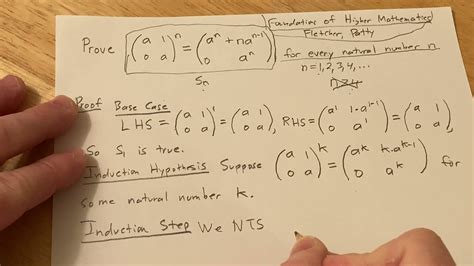 Foundations of Higher Mathematics
Fletcher, Patty
Prove (a 1 0 a)^n = (a^n + na^{n-1} 0 a^n) for every natural number n
S_n
n = 1, 2, 3, 4, ...
Proof Base Case
LHS = (a 1 0 a)^1 = (a 1 0 a), RHS = (a^1 1·a^{1-1} 0 a^1) = (a 1 0 a),
So S_1 is true.
Induction Hypothesis Suppose (a 1 0 a)^k = (a^k k·a^{k-1} 0 a^k) for
some natural number k.
Induction Step We NTS